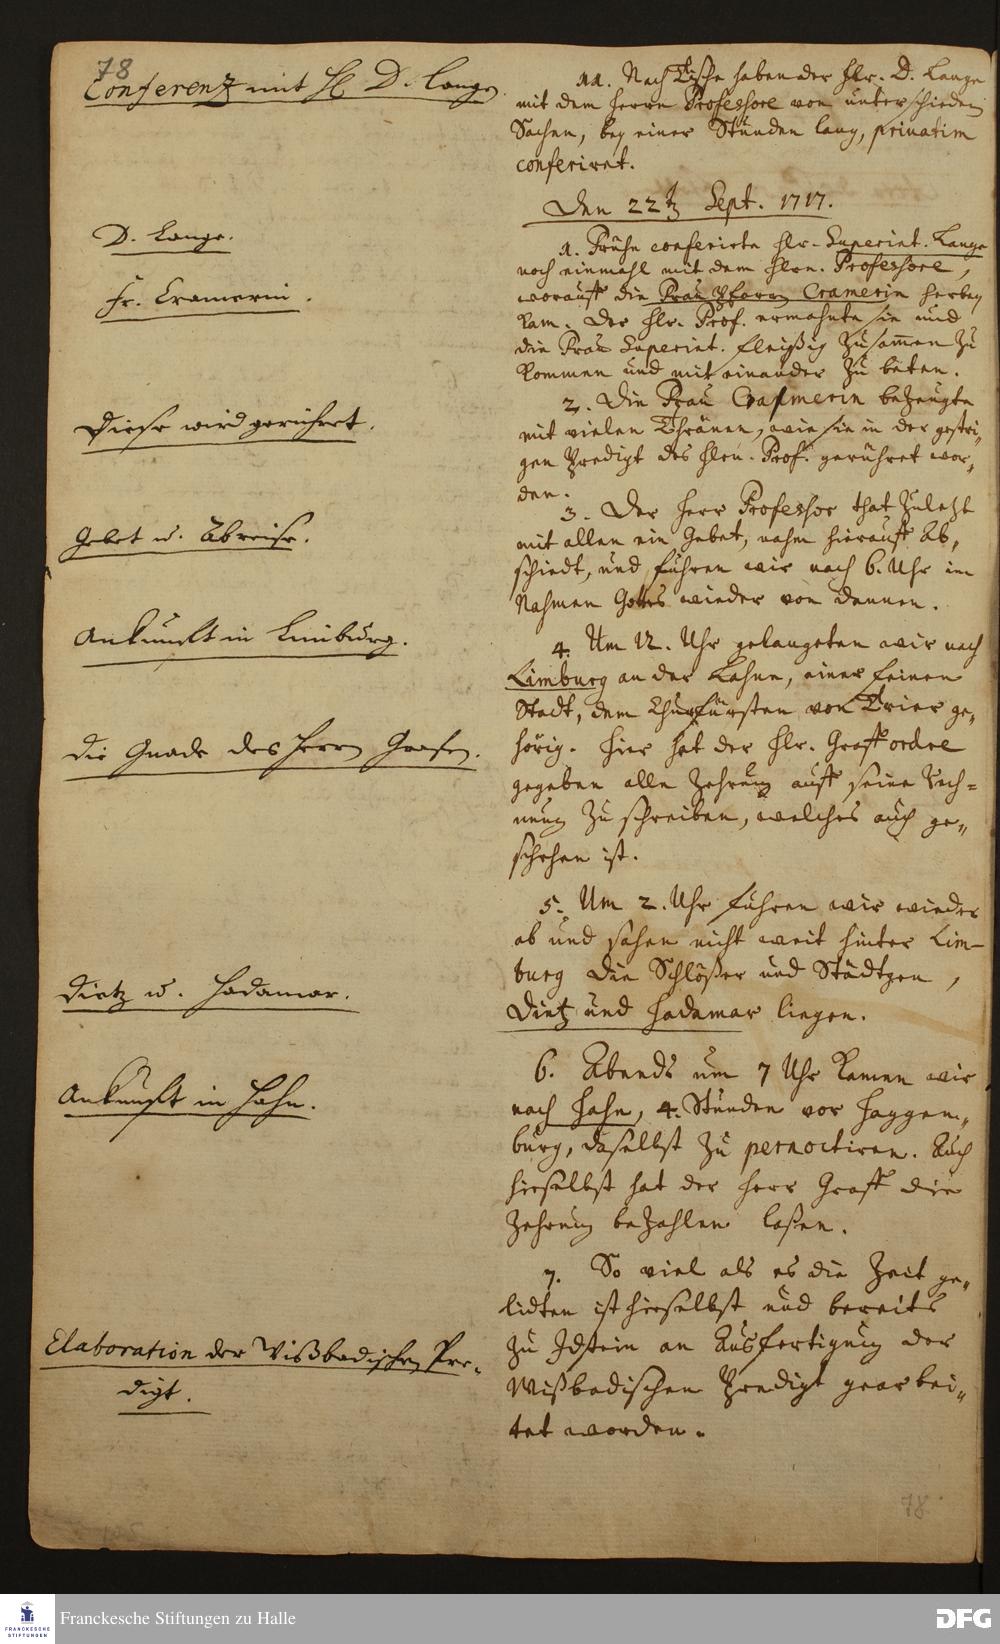 78
Conferentz mit H. D. Lange.
11. Nach Tische haben der Hlr. D. Lange
mit dem Herrn Professore von unterschieden
Sachen, bey einer Stunden lang, privatim
conferiret.
Den 22t Sept. 1717.
D. Lange.
1. Frühe conferirte Hlr. Superint. Lange
noch einmahl mit dem Hlrn. Professore,
Fr. Cramerin.
worauff die Frau Pfarr Cramerin herbey
kam. Der Hlr. Prof. ermahnte sie und
die Frau Superint. fleißig zusammen zu
kommen und mit einander zu beten.
Diese wird gerühret.
2. Die Frau Cramerin bezeugte
mit vielen Thränen, wie sie in der gestri-
gen Predigt des Hlrn. Prof. gerühret wor-
den.
Gebet u. Abreise.
3. Der Herr Professor that zuletzt
mit allen ein Gebet, nahm hierauff Ab-
schiedt, und führen wir nach 6. Uhr im
Nahmen Gottes wieder von dannen.
Ankunfft in Limburg.
4. Um 12. Uhr gelangeten wir nach
Limburg an der Lahne, einer feinen
Stadt, dem Churfürsten von Trier ge-
Die Gnade des Herrn Grafen.
hörig. Hier hat der Hlr. Graff ordre
gegeben alle Zehrung auff seine Rech-
nung zu schreiben, welches auch ge-
schehen ist.
5. Um 2. Uhr führen wir wieder
ab und sahen nicht weit hinter Lim-
Dietz u. Hadamar.
burg die Schlößer und Städtgen,
Dietz und Hadamar liegen.
Ankunfft in Hahn.
6. Abends um 7 Uhr kamen wir
nach Hahn, 4. Stunden vor Haggem-
burg, daselbst zu pernoctiren. Auch
hieselbst hat der Herr Graff die
Zehrung bezahlen laßen.
7. So viel als es die Zeit ge-
lidten ist hieselbst und bereits
Elaboration der Wißbadischen Pre-
digt.
zu Idstein an Ausfertigung der
Wißbadischen Predigt gearbei-
tet worden.
78
Franckesche Stiftungen zu Halle
FRANCKESCHE
STIFTUNGEN
DFG